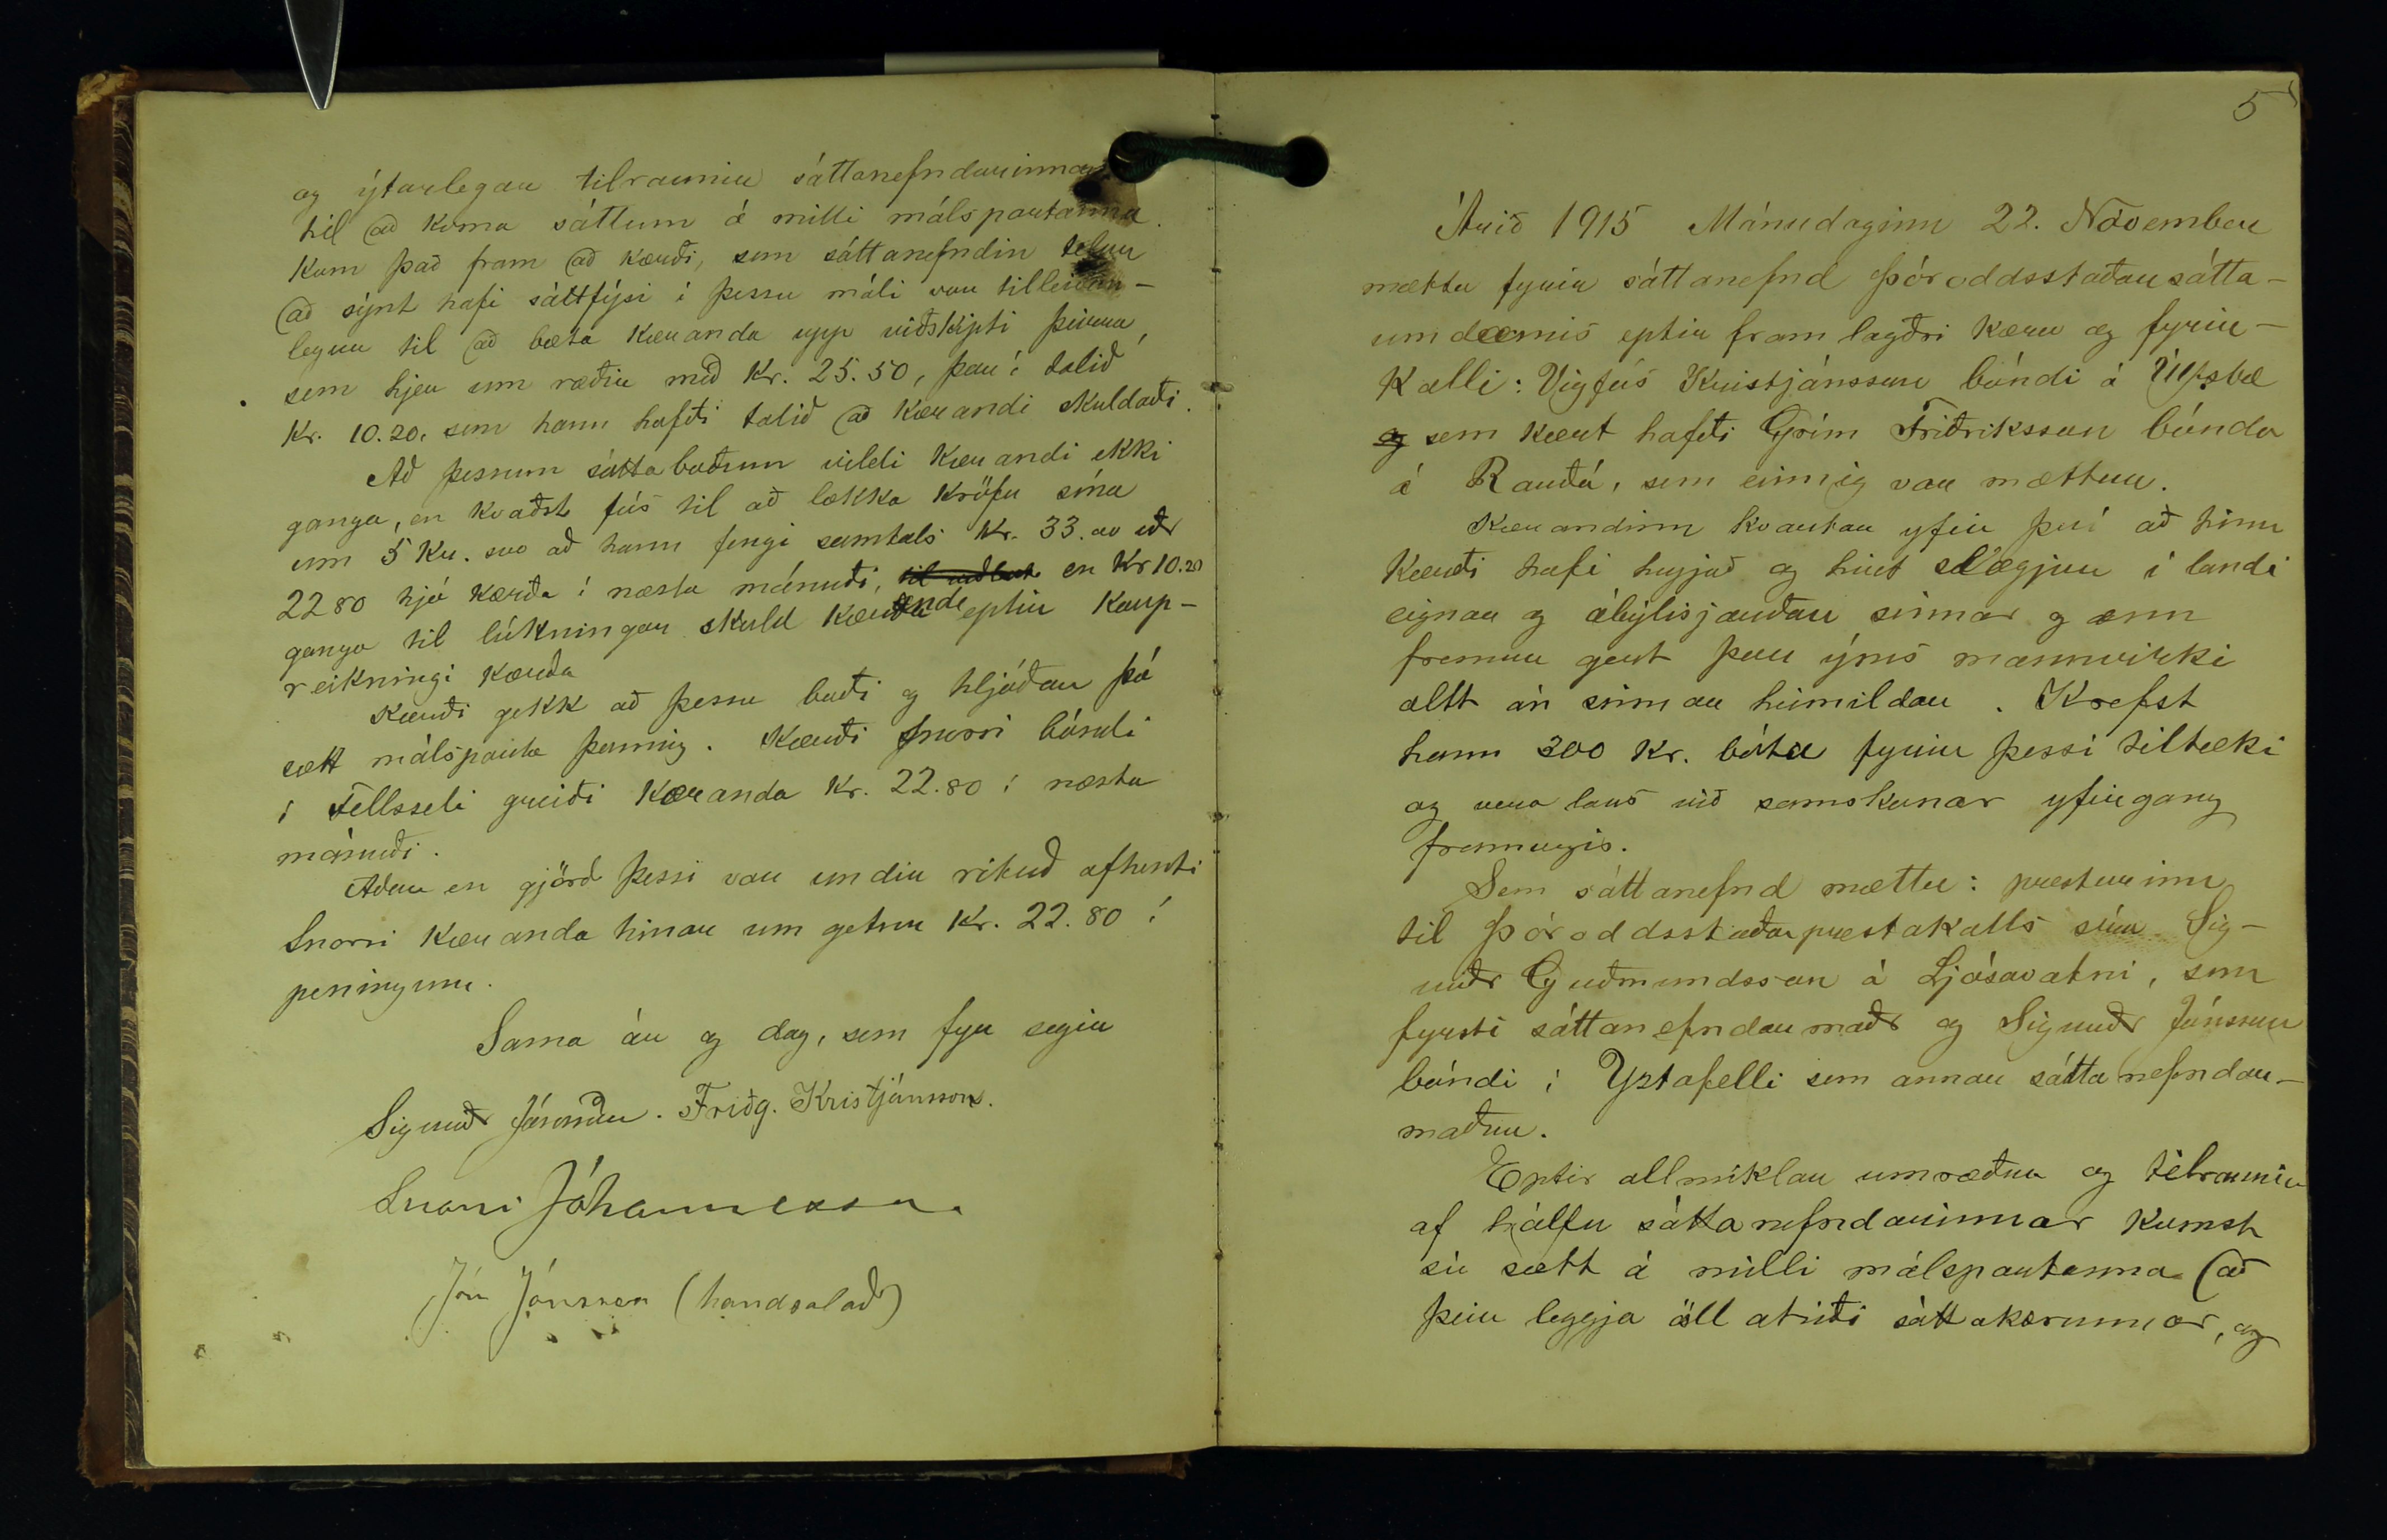 og ýtarlegar tilraunir sáttanefndarinnar
til að koma sáttum á milli málspartanna.
Kom það fram að kærði, sem sáttanefndin telur
að sýnt hafi sáttfýsi í þessu máli var tilleiðan-
legur til að bæta kæranda upp viðskipti þeirra,
sem hjer um ræðir með Kr. 25.50, þar í talið
Kr. 10.20. sem hann hafði talið að kærandi skuldaði.
Að þessum sáttaboðum vildi kærandi ekki
ganga, en kvaðst fús til að lækka kröfu sína
um 5 Kr. svo að hann fengi samtals Kr. 33.00 eðr
22 80 hjá kærða í næsta mánuði, en Kr 10.20
ganga til lúkningar skuld kæranda eptir kaup-
reikningi kærða
Kærði gekk að þessu boði og hljóðar þá
sætt málsparta þannig. Kærði Snorri bóndi
í Fellsseli greiði kæranda Kr. 22.80 í næsta
mánuði.
Aður en gjörð þessi var undir rituð afhenti
Snorri kæranda hinar um getnu Kr. 22.80 í
peningum.
Sama ár og dag, sem fyr segir
Sigurðr Jónsson. Friðg. Kristjánsson.
Snorri Jóhannesson.
Jón Jónsson (handsalað)
5
Árið 1915 Mánudaginn 22. Nóvember
mættu fyrir sáttanefnd Þóroddsstaðarsátta-
umdæmis eptir fram lagðri kæru og fyrir-
Kalli: Vigfús Kristjánsson bóndi á Úlfsbæ
og sem kært hafði Grím Friðriksson bónda
á Rauðá, sem einnig var mættur.
Kærandinn kvartar yfir því að hinn
kærði hafi hyggjað og hirt slægjur í landi
eignar og ábýlisjarðar sinnar og enn
fremur gert þar ýms mannvirki
allt án sinnar heimildar. Krefst
hann 300 Kr. bóta fyrir þessi tiltæki
og vera laus við samskonar yfirgang
framvegis.
Sem sáttanefnd mættu: presturinn
til Þóroddsstaðarprestakalls síra Sig-
urðr Guðmundsson á Ljósavatni, sem
fyrsti sáttanefndarmaðr og Sigurðr Jónsson
bóndi í Yztafelli sem annar sáttanefndar-
maður.
Eptir allmiklar umræður og tilraunir
af hálfu sáttanefndarinnar komst
sú sætt á milli málspartanna að
þeir leggja öll atriði sáttakærunnar, og